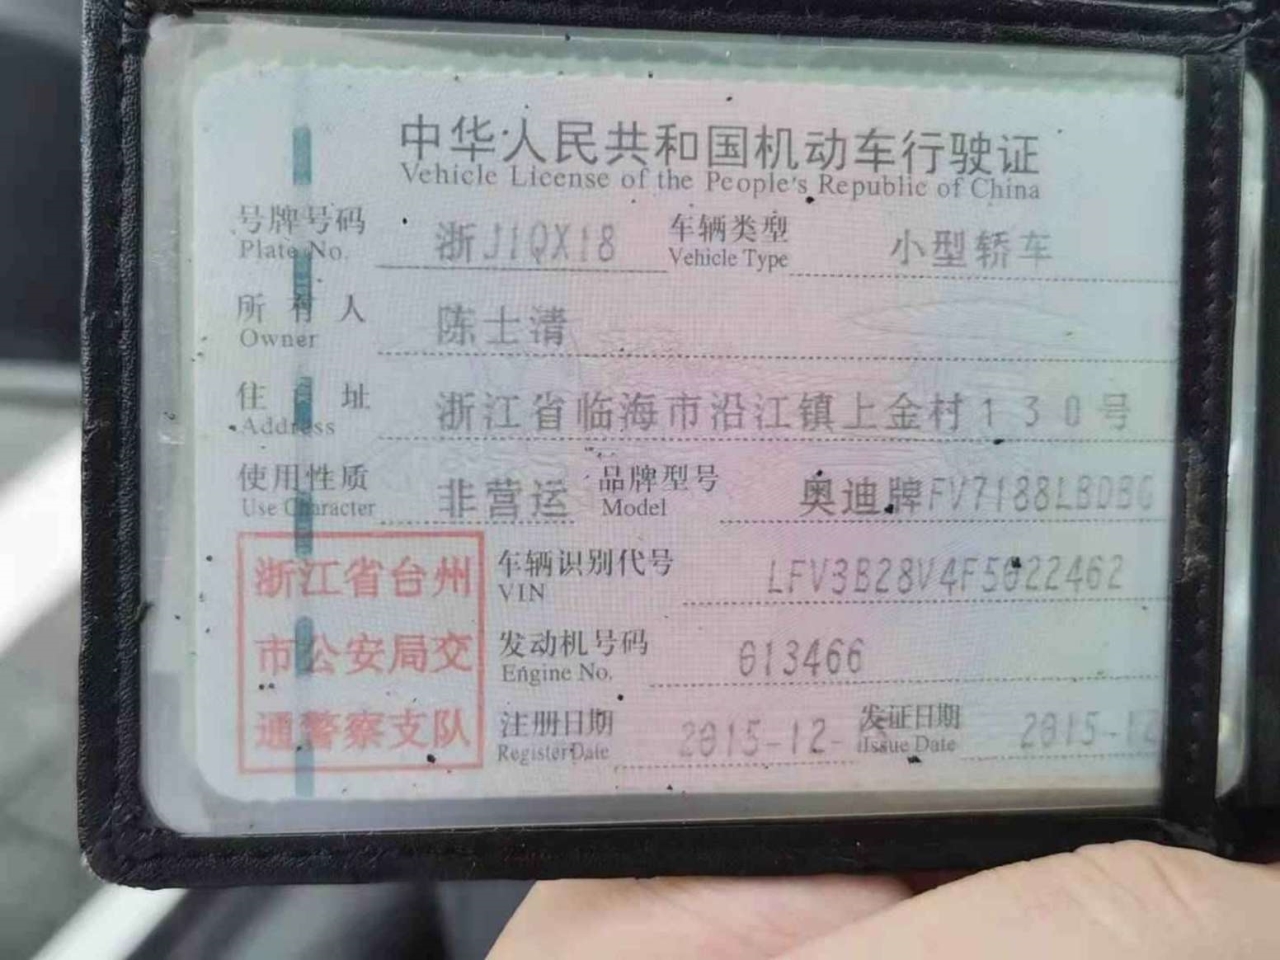 中华人民共和国机动车行驶证
Vehicle License of the People's Republic of China
号牌号码 浙J1QX18 车辆类型 小型轿车
Plate No. Vehicle Type
所有人 陈士清
Owner
住址 浙江省临海市沿江镇上金村130号
Address
使用性质 非营运 品牌型号 奥迪牌FV7188LBDBG
Use Character Model
浙江省台州 车辆识别代号 LFV3B28V4F5022462
VIN
市公安局交 发动机号码 013466
Engine No.
通警察支队 注册日期 2015-12- 发证日期 2015-12
Register Date Issue Date